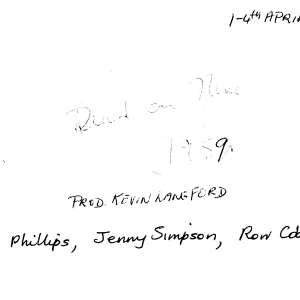 1-4th APRI
Dead on Nine
1989.
PROD. KEVIN LANGFORD
Phillips, Jenny Simpson, Ron Co